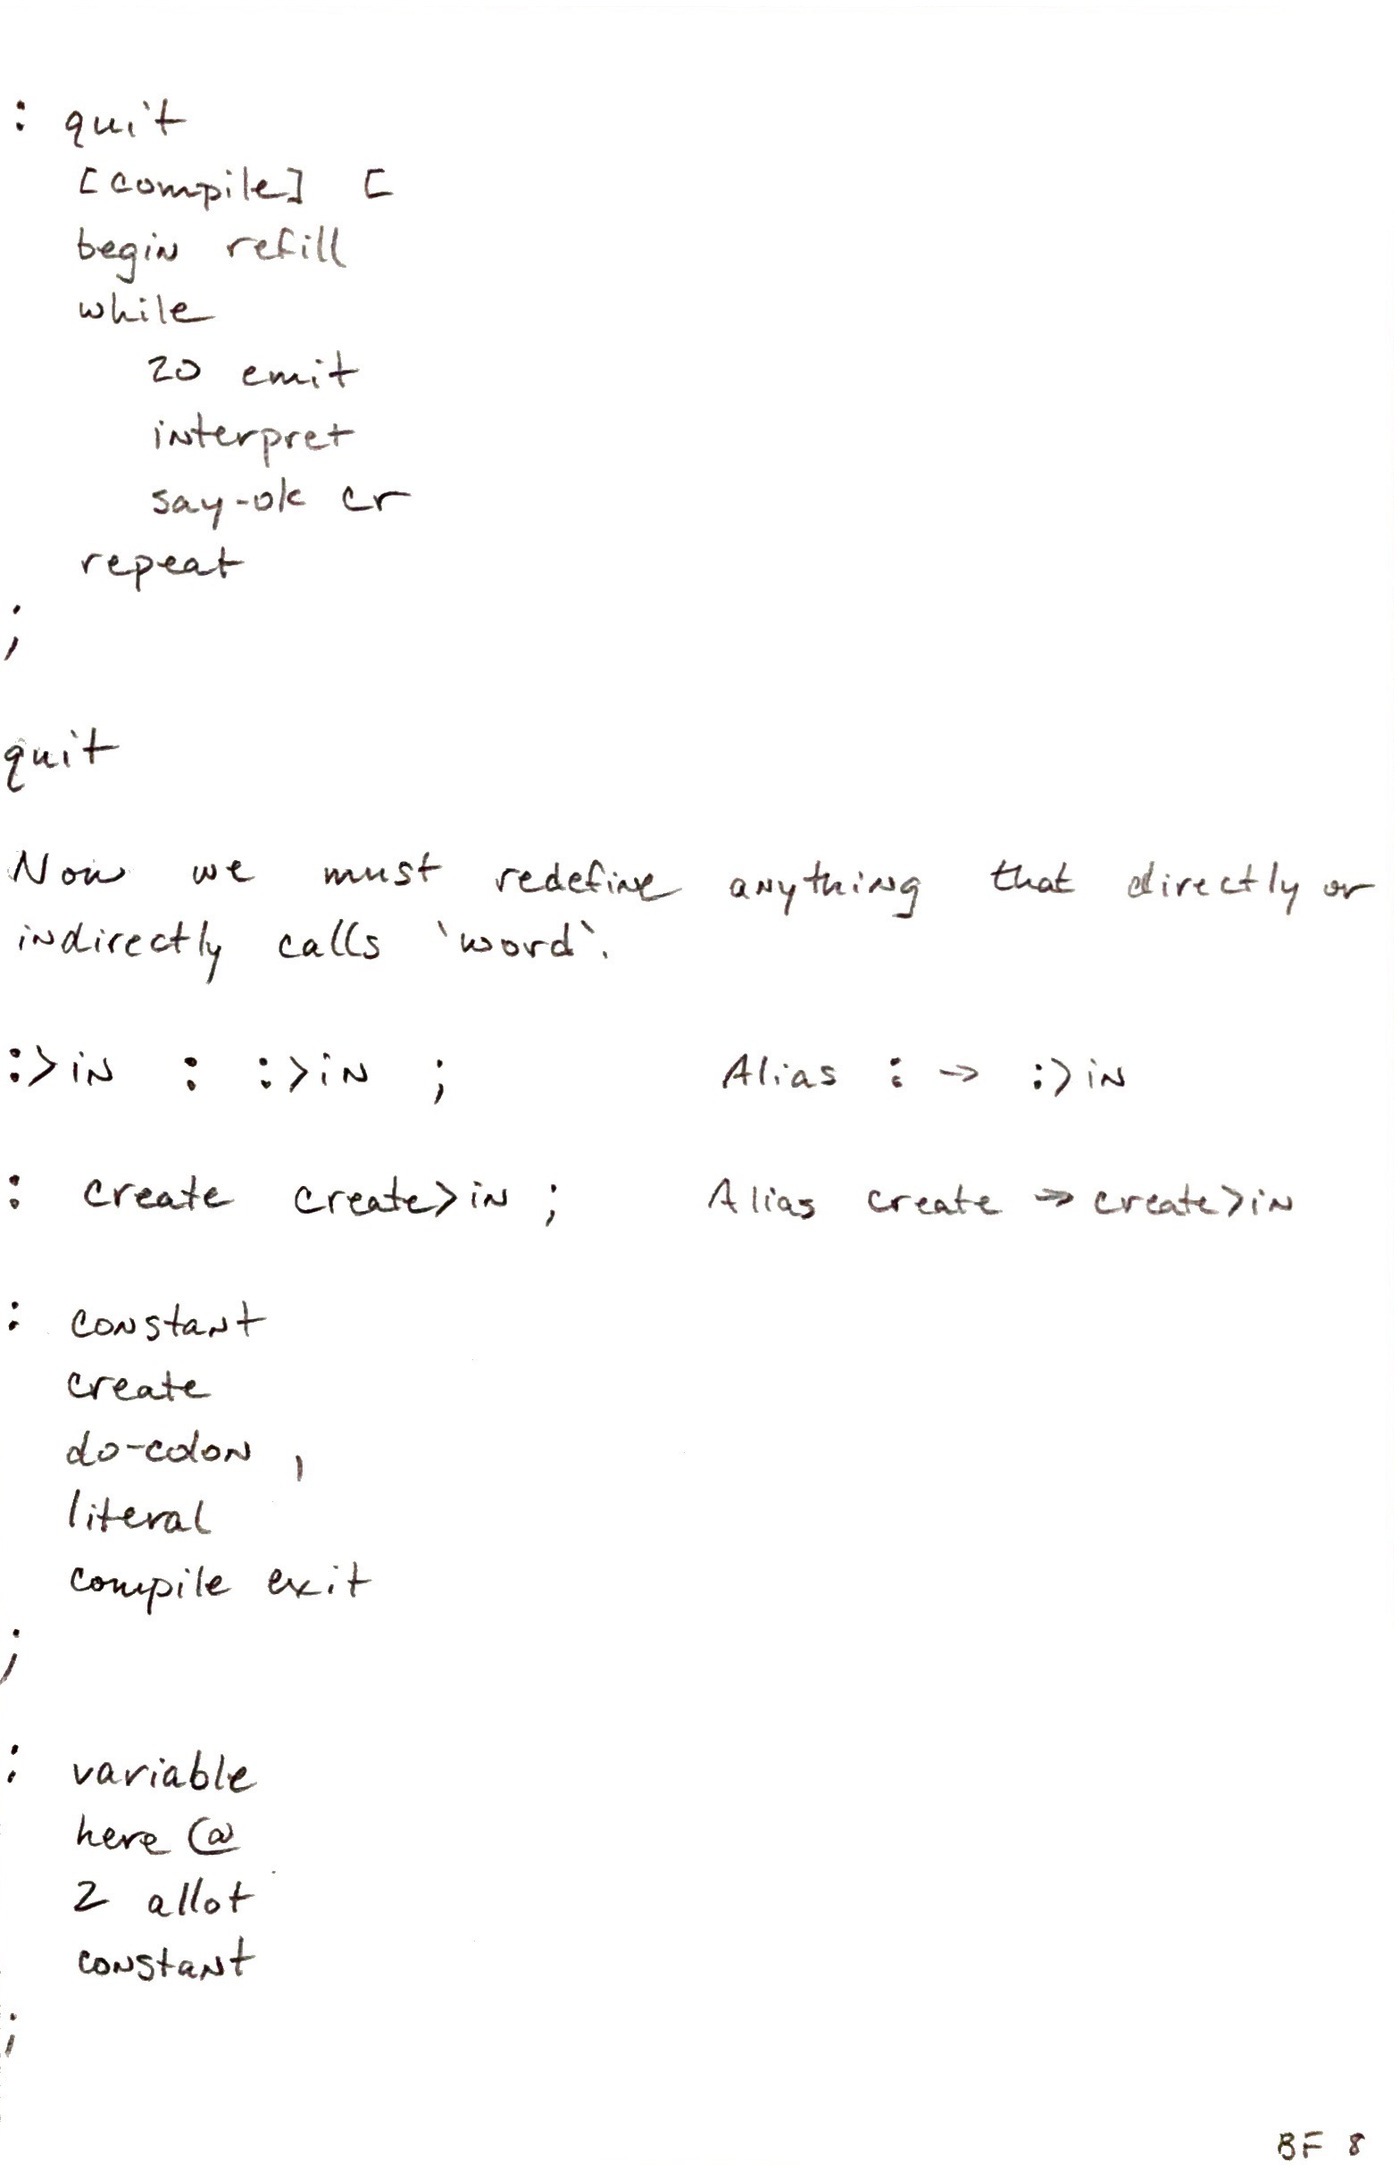 : quit
[compile] [
begin refill
while
20 emit
interpret
say-ok cr
repeat
;
quit
Now we must redefine anything that directly or
indirectly calls `word`.
:>in : :>in ; Alias : → :>in
: create create>in ; Alias create → create>in
: constant
create
do-colon ,
literal
compile exit
;
: variable
here @
2 allot
constant
;
BF 8